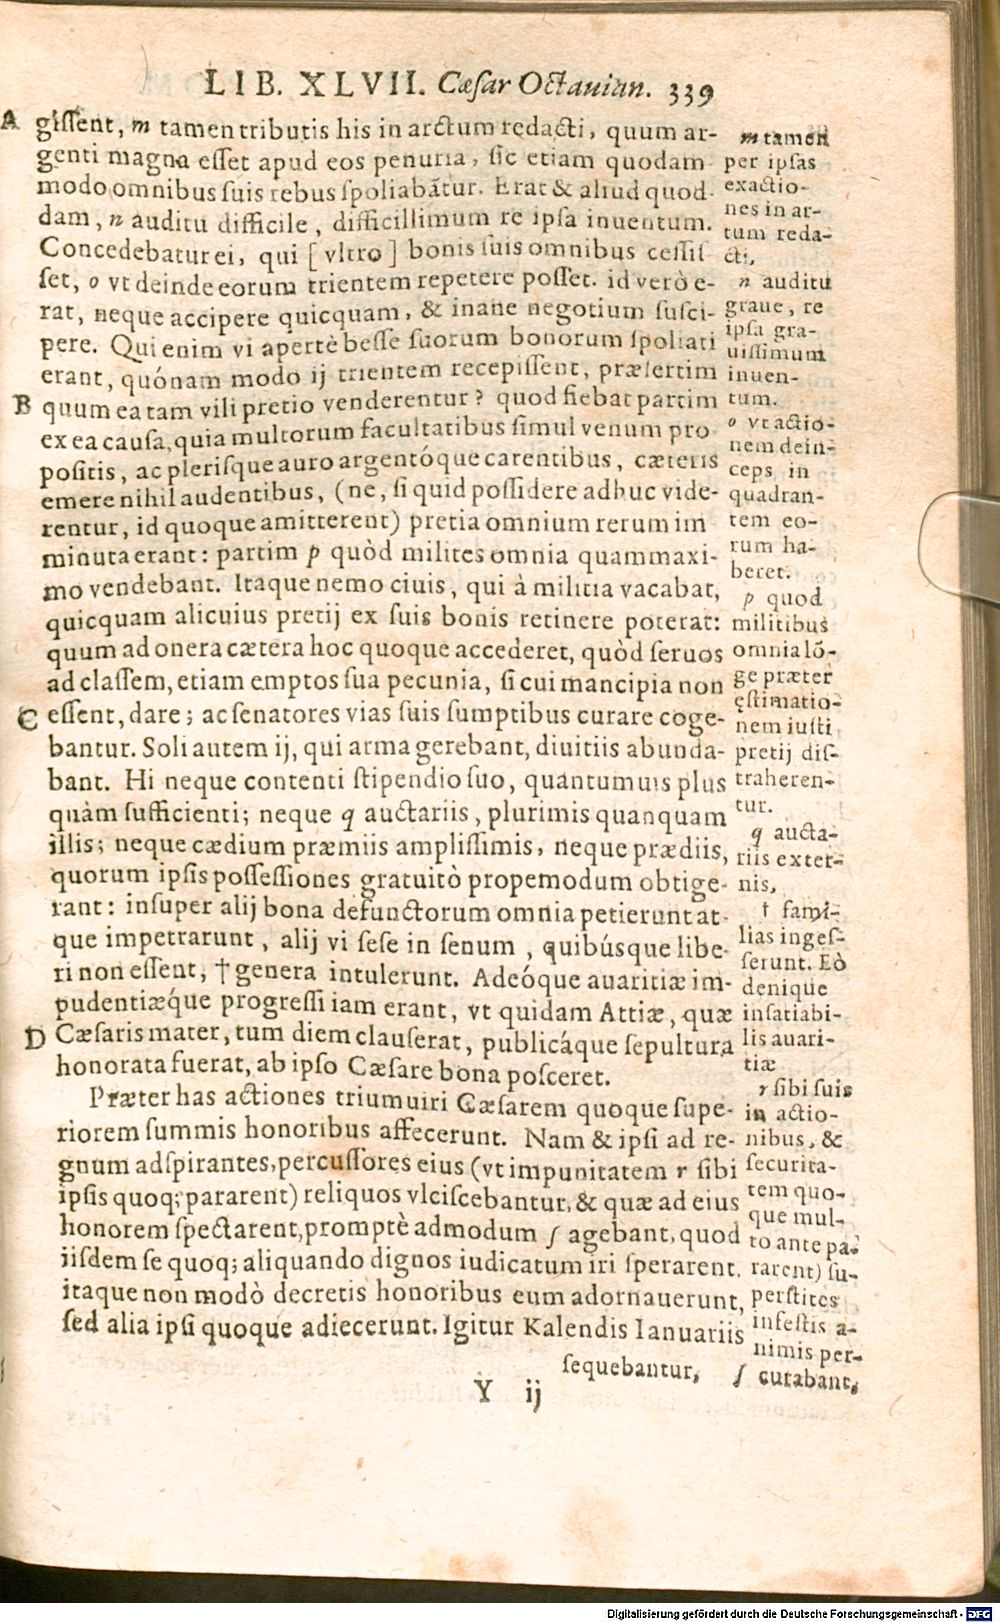 LIB. XLVII. Cæſar Octauian. 339
A giſſent, m tamen tributis his in arctum redacti, quum ar-
genti magna eſſet apud eos penuria, ſic etiam quodam
modo omnibus ſuis rebus ſpoliabãtur. Erat & aliud quod-
dam, n auditu difficile, difficillimum re ipſa inuentum.
Concedebatur ei, qui [vltro] bonis ſuis omnibus ceſſiſ-
ſet, o vt deinde eorum trientem repetere poſſet. id verò e-
rat, neque accipere quicquam, & inane negotium ſuſci-
pere. Qui enim vi apertè beſſe ſuorum bonorum ſpoliati
erant, quónam modo ij trientem recepiſſent, præſertim
B quum ea tam vili pretio venderentur? quod fiebat partim
ex ea cauſa, quia multorum facultatibus ſimul venum pro-
poſitis, ac pleriſque auro argentóque carentibus, cæteris
emere nihil audentibus, (ne, ſi quid poſſidere adhuc vide-
rentur, id quoque amitterent) pretia omnium rerum im
minuta erant: partim p quòd milites omnia quammaxi-
mo vendebant. Itaque nemo ciuis, qui à militia vacabat,
quicquam alicuius pretij ex ſuis bonis retinere poterat:
quum ad onera cætera hoc quoque accederet, quòd ſeruos
ad claſſem, etiam emptos ſua pecunia, ſi cui mancipia non
C eſſent, dare; ac ſenatores vias ſuis ſumptibus curare coge-
bantur. Soli autem ij, qui arma gerebant, diuitiis abunda-
bant. Hi neque contenti ſtipendio ſuo, quantumuis plus
quàm ſufficienti; neque q auctariis, plurimis quanquam
illis; neque cædium præmiis ampliſſimis, neque prædiis,
quorum ipſis poſſeſſiones gratuitò propemodum obtige-
rant: inſuper alij bona defunctorum omnia petierunt at-
que impetrarunt, alij vi ſeſe in ſenum, quibúsque libe-
ri non eſſent, † genera intulerunt. Adeóque auaritiæ im-
pudentiæque progreſſi iam erant, vt quidam Attiæ, quæ
D Cæſaris mater, tum diem clauſerat, publicáque ſepultura
honorata fuerat, ab ipſo Cæſare bona poſceret.
Præter has actiones triumuiri Cæſarem quoque ſupe-
riorem ſummis honoribus affecerunt. Nam & ipſi ad re-
gnum adſpirantes, percuſſores eius (vt impunitatem r ſibi
ipſis quoq; pararent) reliquos vlciſcebantur, & quæ ad eius
honorem ſpectarent, promptè admodum ſ agebant, quod
iiſdem ſe quoq; aliquando dignos iudicatum iri ſperarent.
itaque non modò decretis honoribus eum adornauerunt,
ſed alia ipſi quoque adiecerunt. Igitur Kalendis Ianuariis
m tamen
per ipſas
exactio-
nes in ar-
tum reda-
cti,
n auditu
graue, re
ipſa gra-
uiſſimum
inuen-
tum.
o vt actio-
nem dein-
ceps in
quadran-
tem eo-
rum ha-
beret.
p quod
militibus
omnia lõ-
ge præter
ęſtimatio-
nem iuſti
pretij diſ-
traheren-
tur.
q aucta-
riis exter-
nis,
† fami-
lias ingeſ-
ſerunt. Eò
denique
inſatiabi-
lis auari-
tiæ
r ſibi ſuis
in actio-
nibus, &
ſecurita-
tem quo-
que mul-
to ante pa-
rarent) ſu-
perſtites
infeſtis a-
nimis per-
ſequebantur, ſ curabant,
Y ij
Digitalisierung gefördert durch die Deutsche Forschungsgemeinschaft - DFG